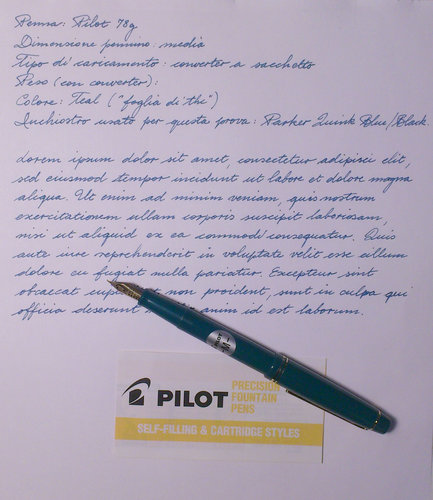 Penna: Pilot 78g
Dimensione pennino: media
Tipo di caricamento: converter a sacchetto
Peso (con converter):
Colore: Teal ("foglia di thè")
Inchiostro usato per questa prova: Parker Quink Blue/Black.
Lorem ipsum dolor sit amet, consectetur adipisci elit,
sed eiusmod tempor incidunt ut labore et dolore magna
aliqua. Ut enim ad minim veniam, quis nostrum
exercitationem ullam corporis suscipit laboriosam,
nisi ut aliquid ex ea commodi consequatur. Quis
aute iure reprehenderit in voluptate velit esse cillum
dolore eu fugiat nulla pariatur. Excepteur sint
obcaecat non proident, sunt in culpa qui
officia deserunt anim id est laborum.
PILOT
PRECISION
FOUNTAIN
PENS
SELF-FILLING & CARTRIDGE STYLES